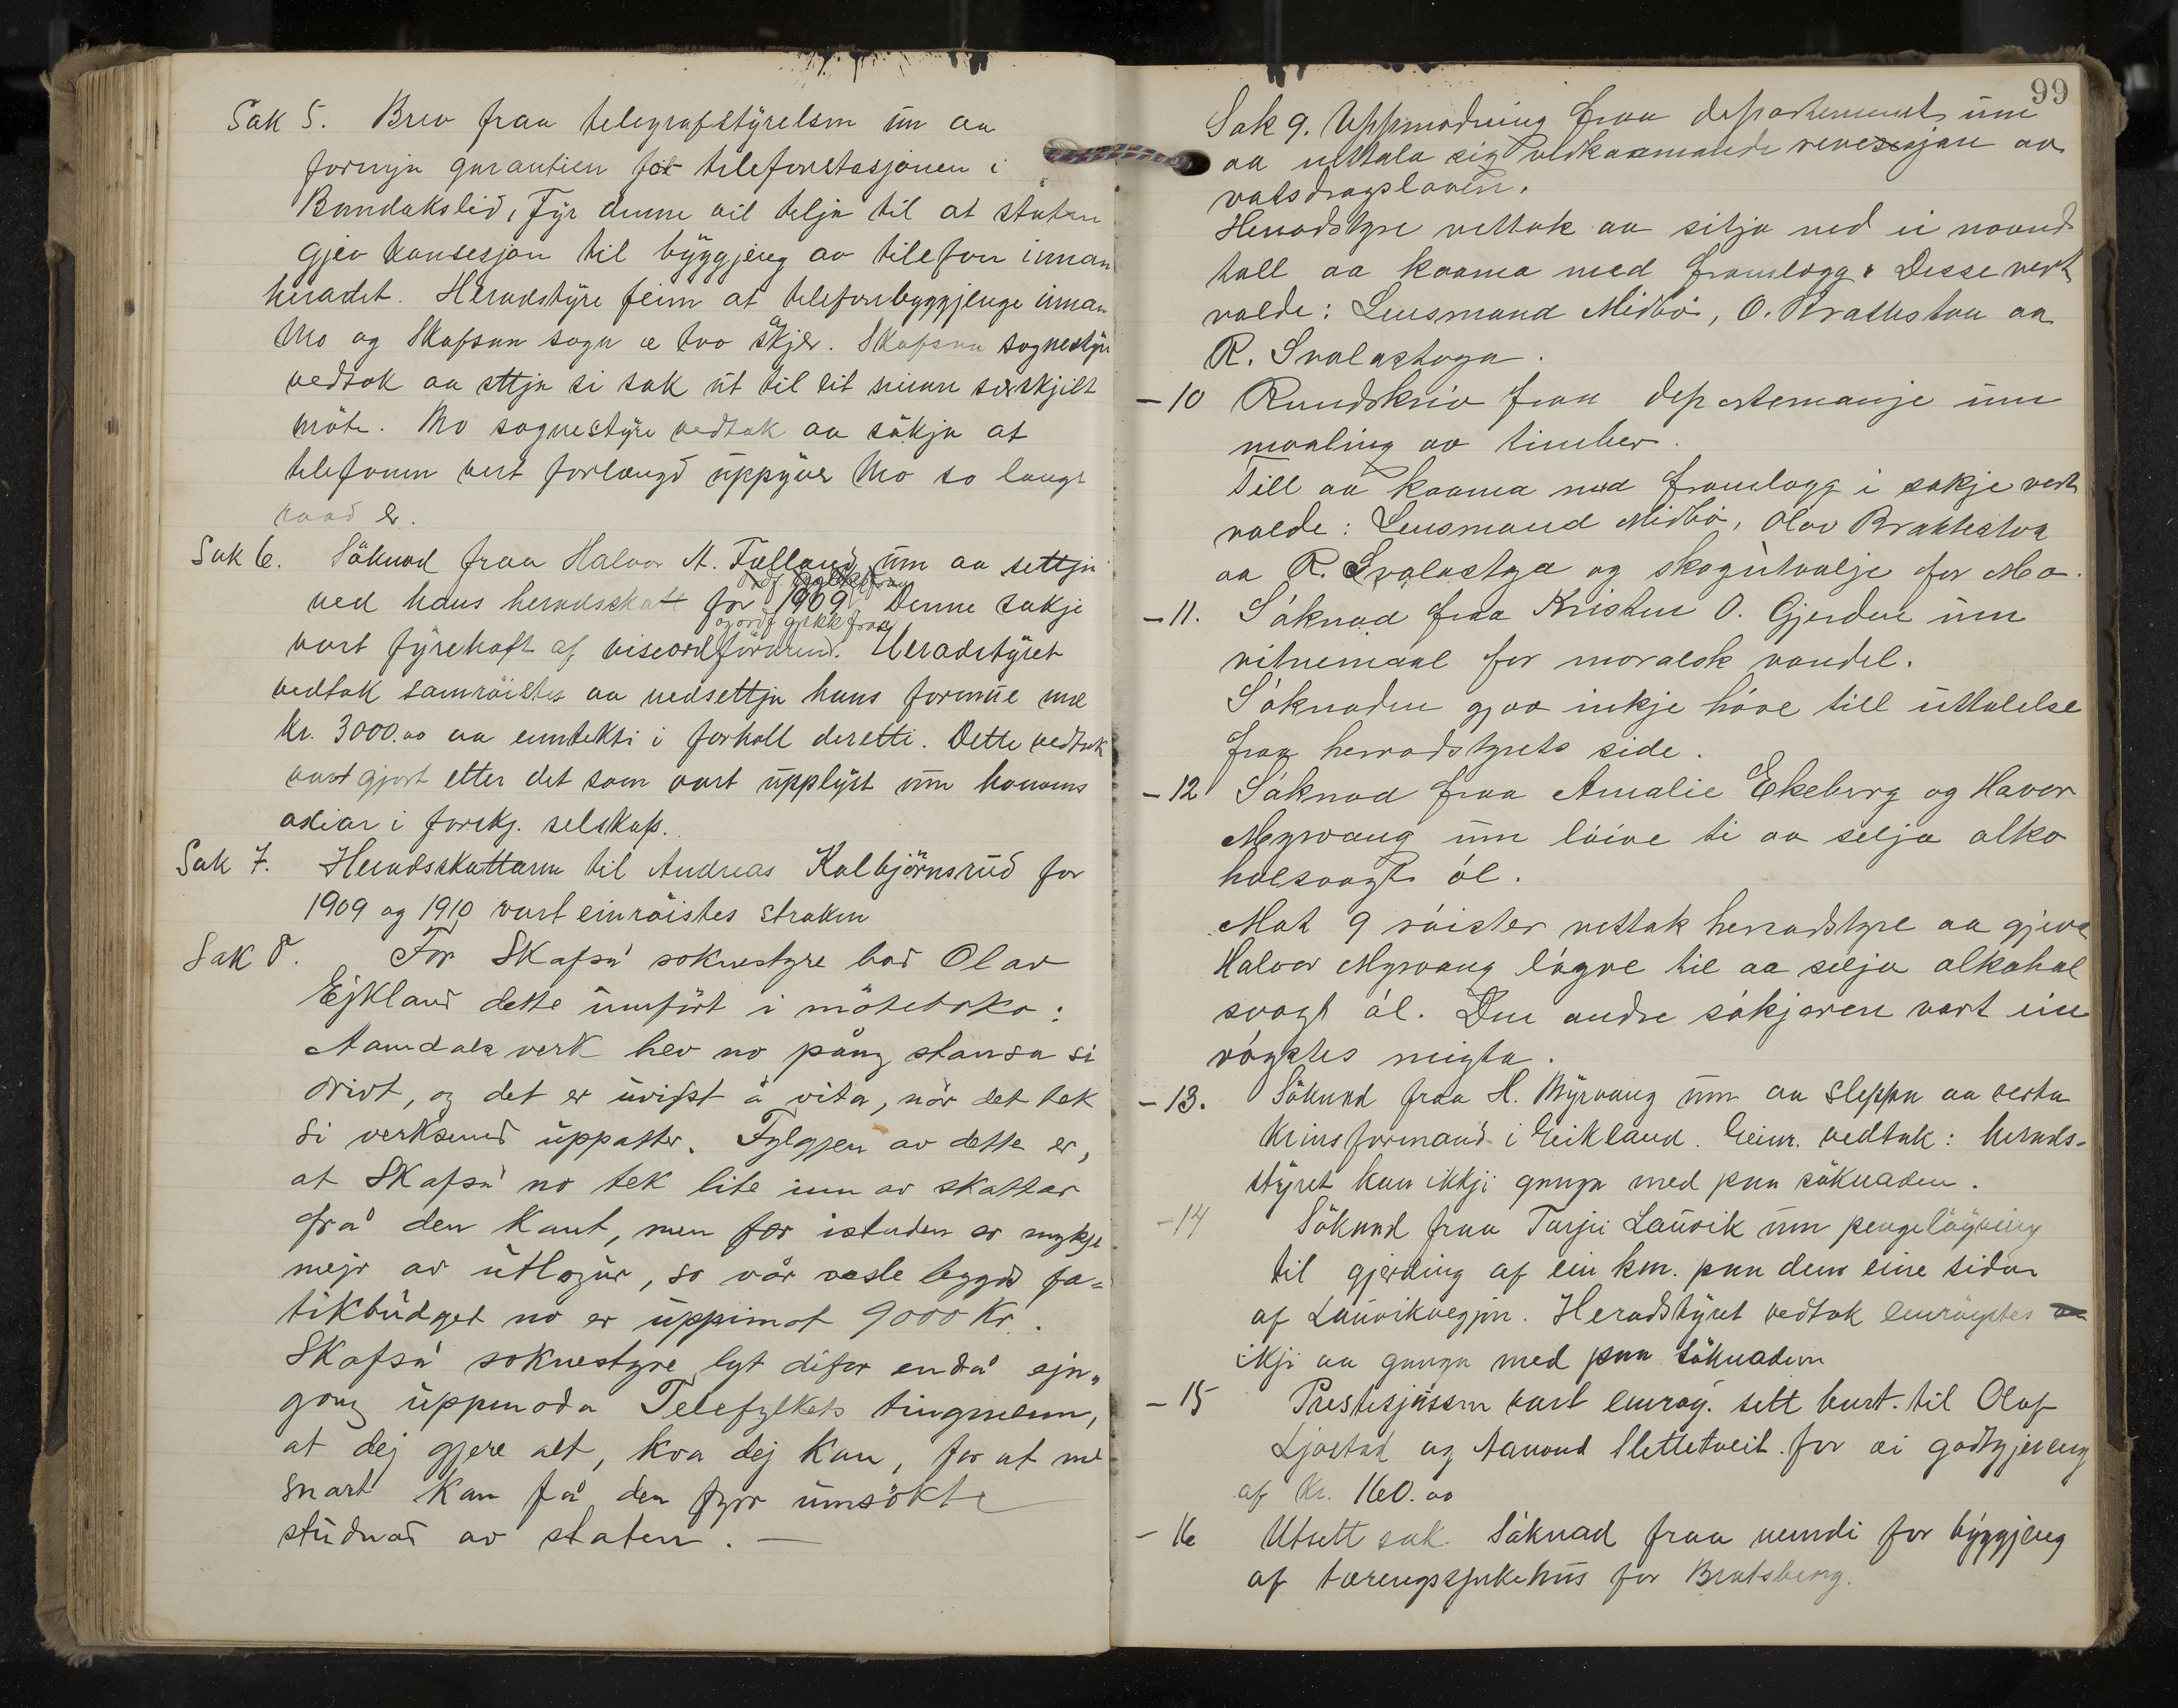 Sak 5. Brev fraa telegrafstÿrelsen üm aa
fornya garantien for telefonstasjonen i
Bandakslid, Fÿr denne vil telja til at staten
gjev konsesjon til bÿggjeng av telefon innan
heradet. Heradstÿre feinn at telefonbyggjenge innan
Mo og Skafsaa sogn æ tvo skjer. Skafsaa sognestÿre
vedtok aa settja si sak üt til eit sinnn særskjilt
möte. Mo sognestÿre vedtok aa sökja at
telefonen vert forlengd üppÿver Mo so langt
raad er.
Sak 6. Söknad fraa Halvor A. Talland üm aa settja
ordf. gjekk fraa
ned hans heradsskatt for 1909. Denne sakje
og ordf. gjekk fraa
vart fÿrehaft af viseordförarend. Heradstÿret
vedtok samröistes aa nedsettja hans formüe mæ
Kr. 3000.00 aa enntekti i forholl deretti. Dette vedtak
vart gjort etter det som vart üpplÿst üm honoms
axiar i forskj. selskap.
Sak 7. Heradsskattann til Andreas Kolbjörnsrüd for
1909 og 1910 vart einröistes stroken
Sak 8. For Skafså soknestyre bad Olav
Ejkland dette ümfört i möteboka:
Aamdals verk hev no pång stansa si
drivt, og det er üvisst å vita, når det tek
si verksemd üppatter. Fylgjen av dette er,
at Skafså no tek lite inn av skattar
frå den kant, men fær istaden so mykje
mejr av ütlogür, so vår vesle bygds fa-
tikbüdget no er üppimot 9000 Kr.
Skafså soknestyre lyt difor endå ejn,,
gong üppmoda Telefylkets tingmenn,
at dej gjere alt, kva dej kan, for at me
snart kan få den fyrr ümsökte
stüdnad av staten. —
99
Sak 9. Uppmodning fraa departement um
aa uttala sig vedkaamande revesjon av
vatsdragsloven.
Herradstyre vettok aa sitja ned ei nevnd
till aa kaama med framlegg. Disse vert
valde: Lensmand Midbö, O. Brattestaa aa
R. Svalastoga.
– 10 Rundskriv fraa departemanje um
maaling av timber.
Till aa kaama med framlegg i sakje vert
valde: Lensmand Midbö, Olav Brattestaa
aa R. Svalastoga og skogütvalje for Mo.
– 11. Söknad fraa Kristen O. Gjerden um
vitnemaal for moralsk vandel.
Söknaden gjev inkje höve till üttalelse
fraa herradstyrets side.
– 12 Söknad fraa Amalie Ekeberg og Havor
Myrvang üm löive ti aa selja alko
holsvagt öl.
Mot 9 röister vettok herradstyre aa gjeva
Halvor Myrvang löyve til aa selja alkohol
svagt öl. Den andre sökjaren vart ein
röystes neigta.
– 13. Söknad fraa H. Mÿrvang üm aa sleppa aa verta
Krinsformand i Eikland. Einr. vedtak: herads-
stÿret kan ikkji gange med paa söknaden.
– 14 Söknad fraa Tarjei Laüvik üm pengelöyving
til gjerding af ein km. paa den eine sidæ
af Laüvikvegjen. Heradstÿret vedtok einröystes
ikji aa gange med paa söknaden
– 15 Prestesjüssen vart einröy. sett burt til Olaf
Ljostad og Aamund Slettetveit for ei godtgjereng
af Kr. 160.00
– 16 Utsett sak. Söknad fraa nemdi for bÿggjeng
af tæringssjukehüs for Bratsberg.